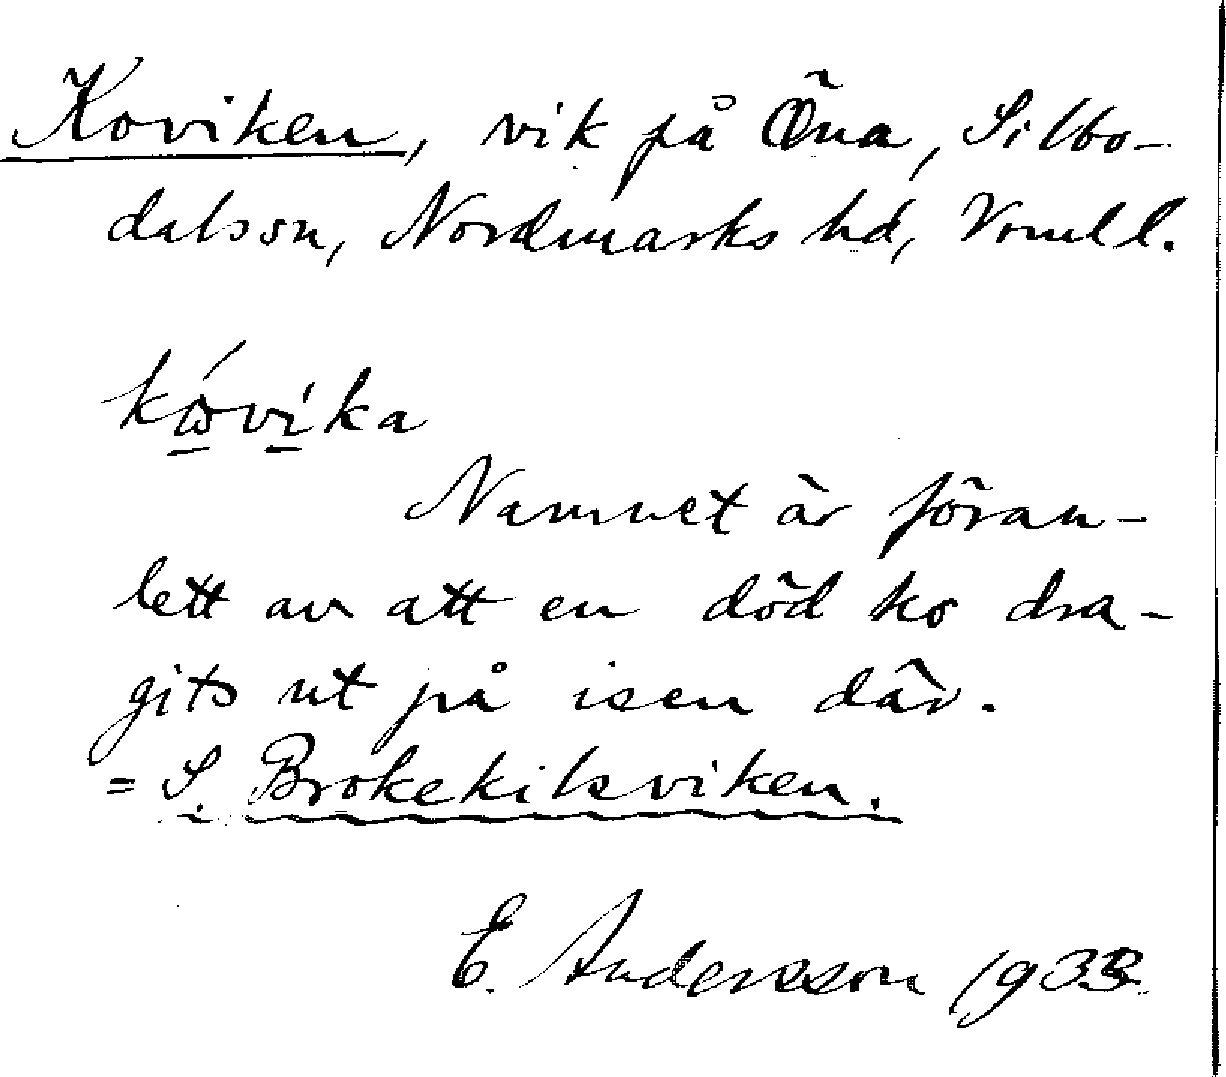 Koviken, vik på Öna, Silbo-
dalssn, Nordmarks hd, Vrml l.
kωvika
Namnet är föran-
lett av att en död ko dra-
gits ut på isen där.
= S. Brokekilsviken.
E. Andersson 1933